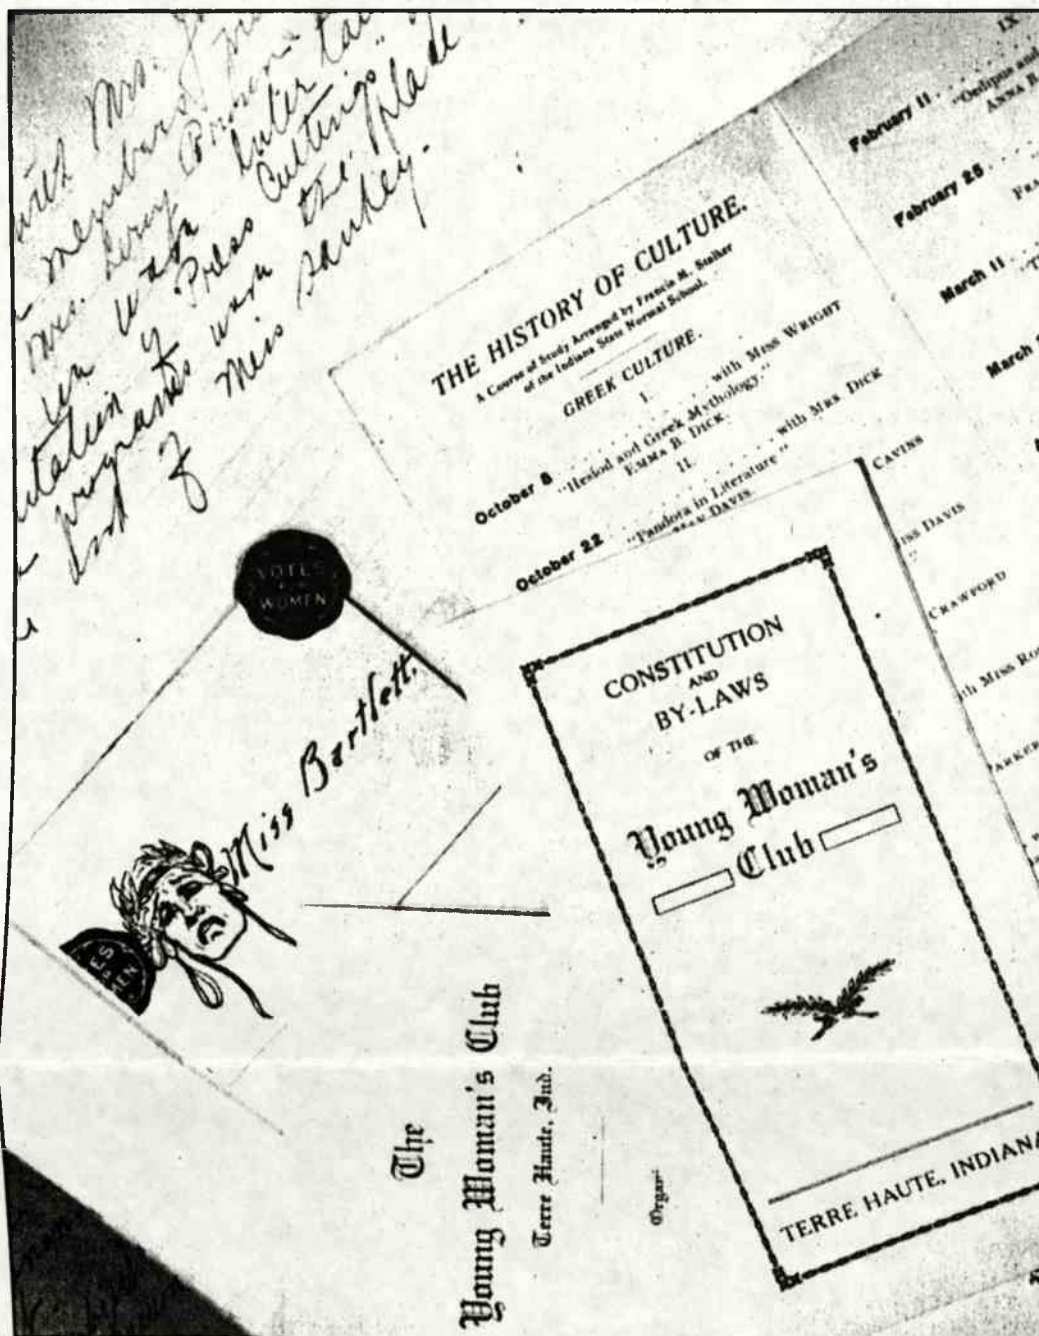 with Mrs.
members
Mrs. Leroy
in was a
Press Cuttings
programs were the place
of Miss Sankey.
THE HISTORY OF CULTURE.
A Course of Study Arranged by Francis M. Stalker
of the Indiana State Normal School.
GREEK CULTURE.
I.
October 8 with Miss Wright
"Hesiod and Greek Mythology."
Emma B. Dick.
II.
October 22 with Mrs. Dick
"Pandora in Literature"
Davis
IX
February 11
"Oedipus and
Anna B.
February 25
Fra
March 11
"T
March
Cavins
iss Davis
Crawford
th Miss Ro
arker
VOTES
FOR
WOMEN
Miss Bartlett,
ES
MEN
CONSTITUTION
AND
BY-LAWS
OF THE
Young Woman's
Club
TERRE HAUTE, INDIANA
The
Young Woman's Club
Terre Haute, Ind.
Organ